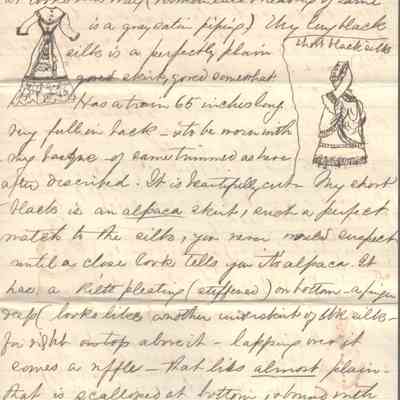 is a gray satin piping) My long black
silk is a perfectly plain
short black silk
gored skirt, gored somewhat
Has a train 65 inches long
very full in back - is to be worn with
my basque - of same trimmed as here
after described. It is beautifully cut - My short
black is an alpaca skirt, such a perfect
match to the silk, you never would suspect
until a close look tells you its alpaca. It
has a kilt pleating (stiffened) on bottom - a finger
deep (looks like another underskirt of blk silk -
for right on top above it - lapping over it
comes a ruffle - that like almost plain -
that is scalloped at bottom & bound with